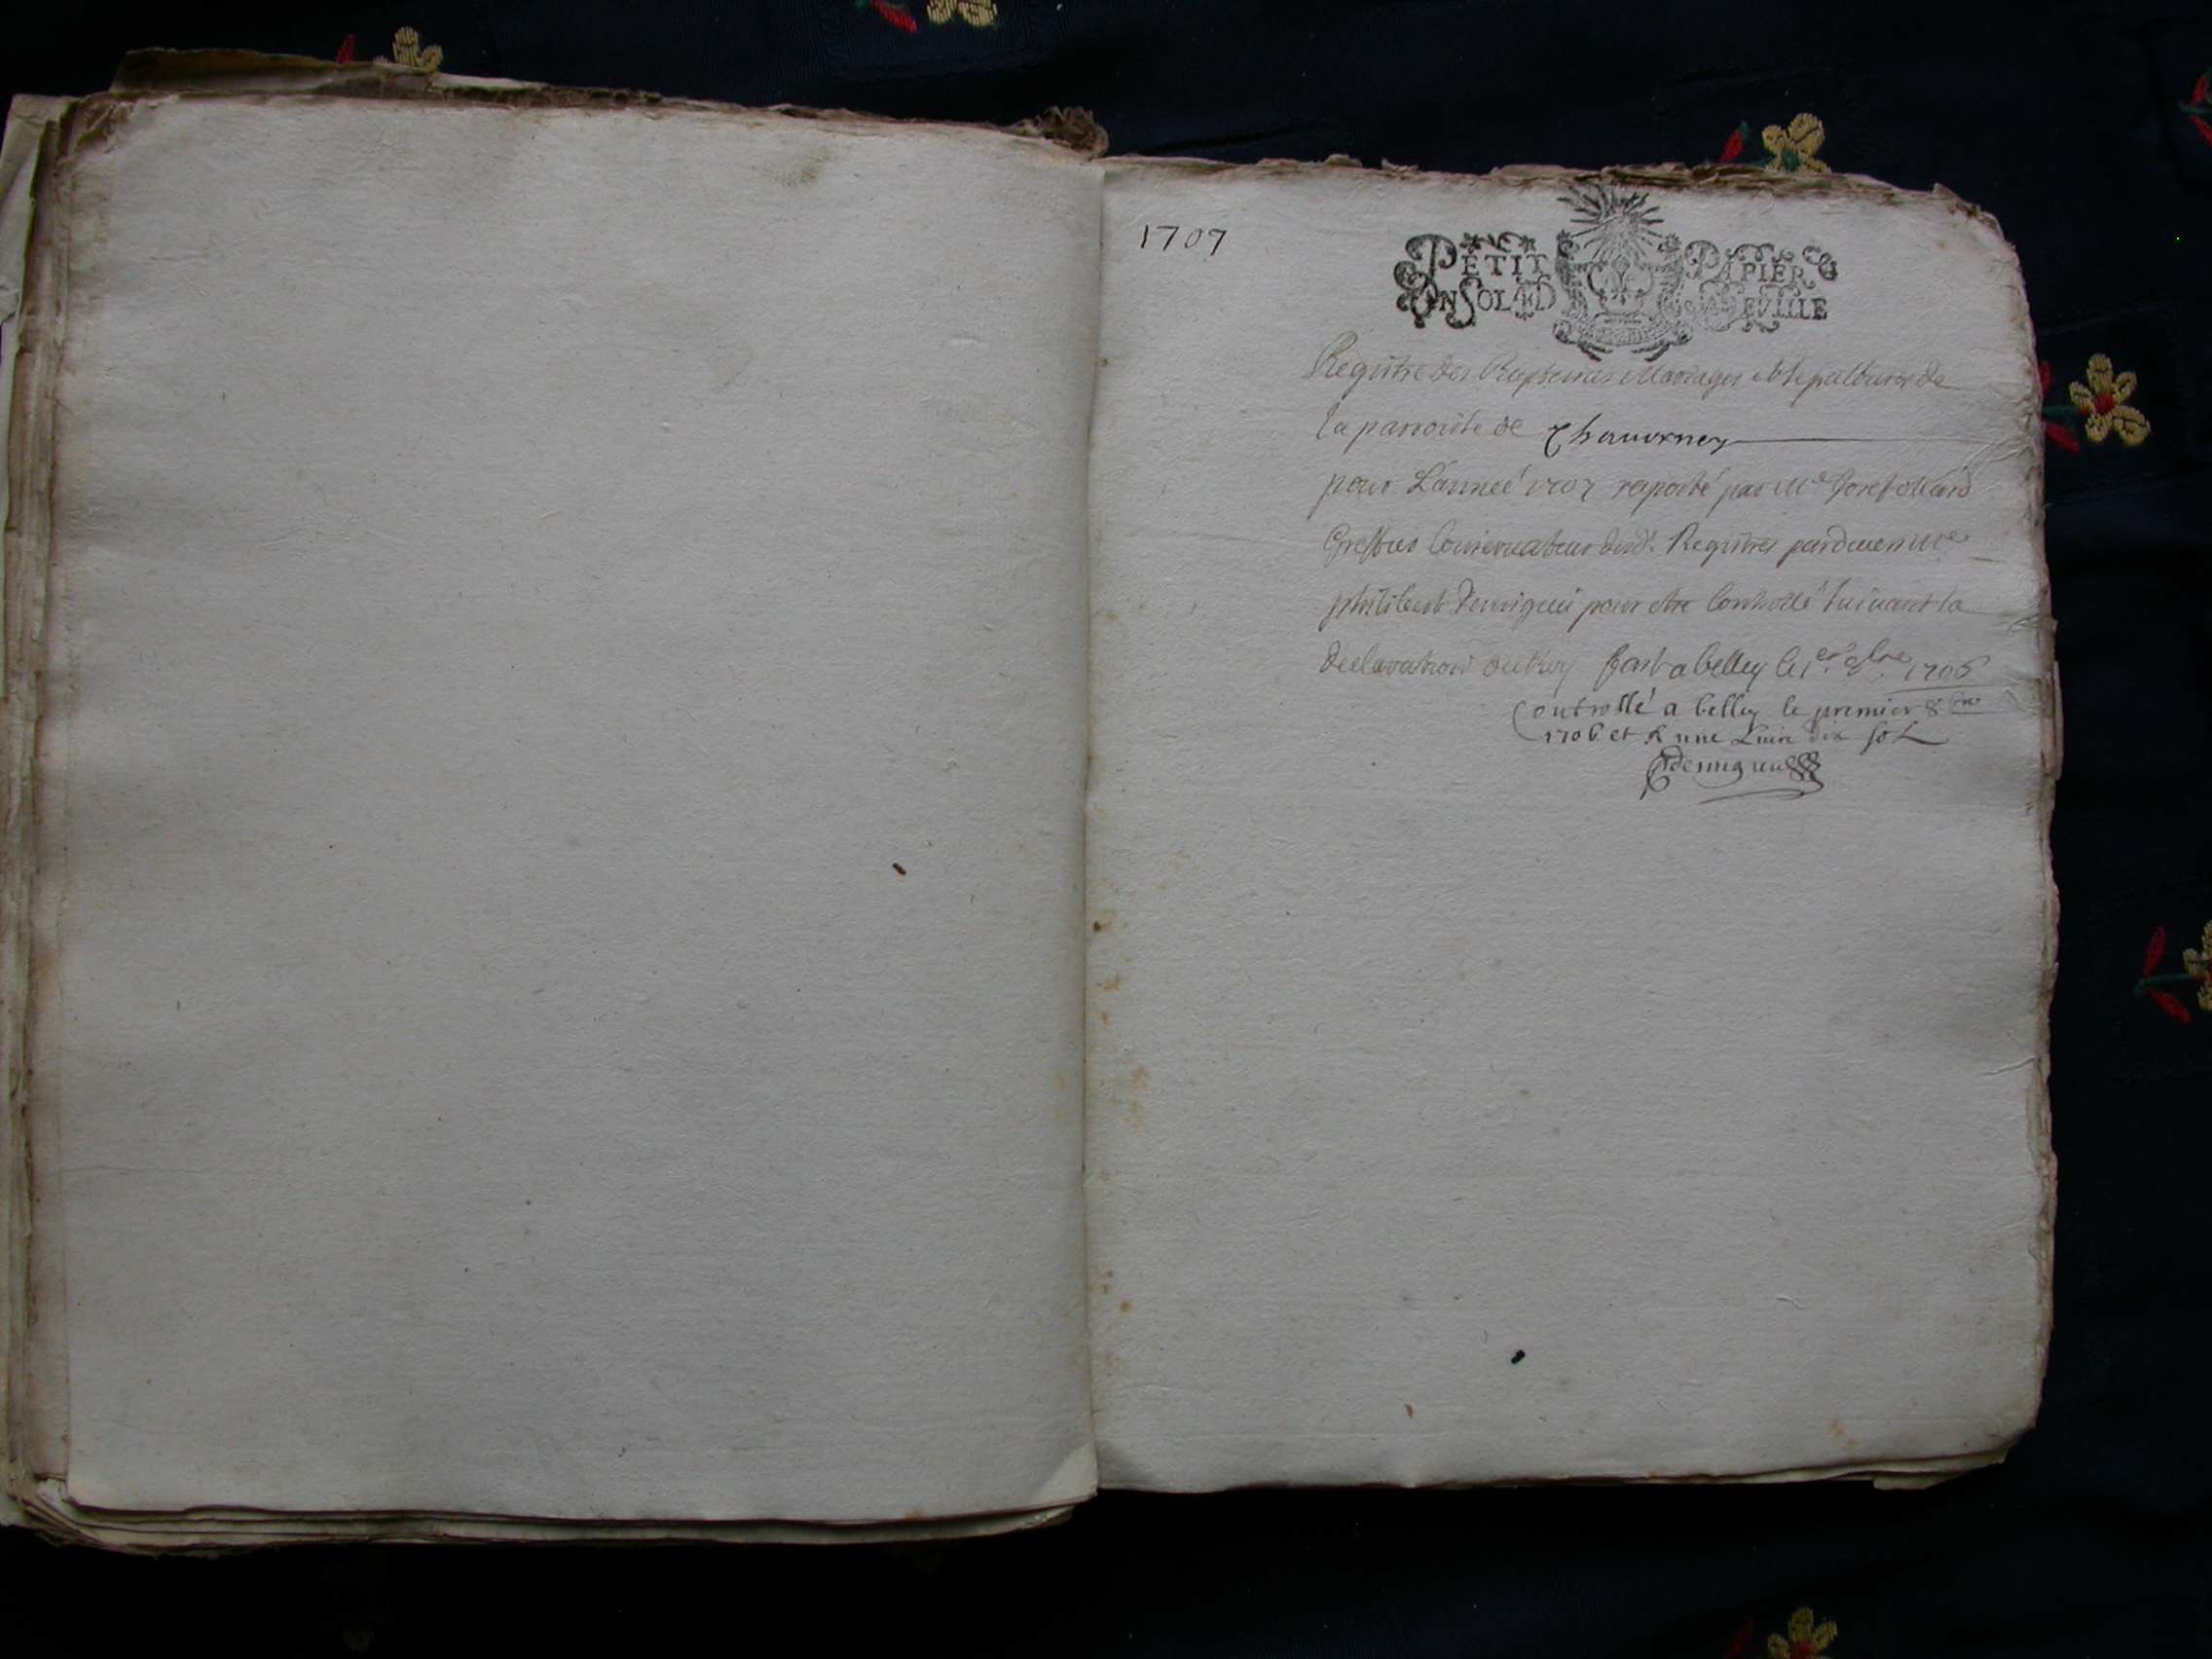 1707
PETIT PAPIER
UN SOL 4D LA FEVILLE
Registre des Baptemes Mariages et Sepultures de
la parroisse de Chavorney
pour L'année 1707 raporté par Me
Greffier Conservateur desd. Registres pardevenu Me
philibert Demigieu pour etre Controllé suivant la
declaration du Roy fait a belley le 1er 8bre 1706
Controllé a belley le premier 8bre
1706 et R une Livre dix sol